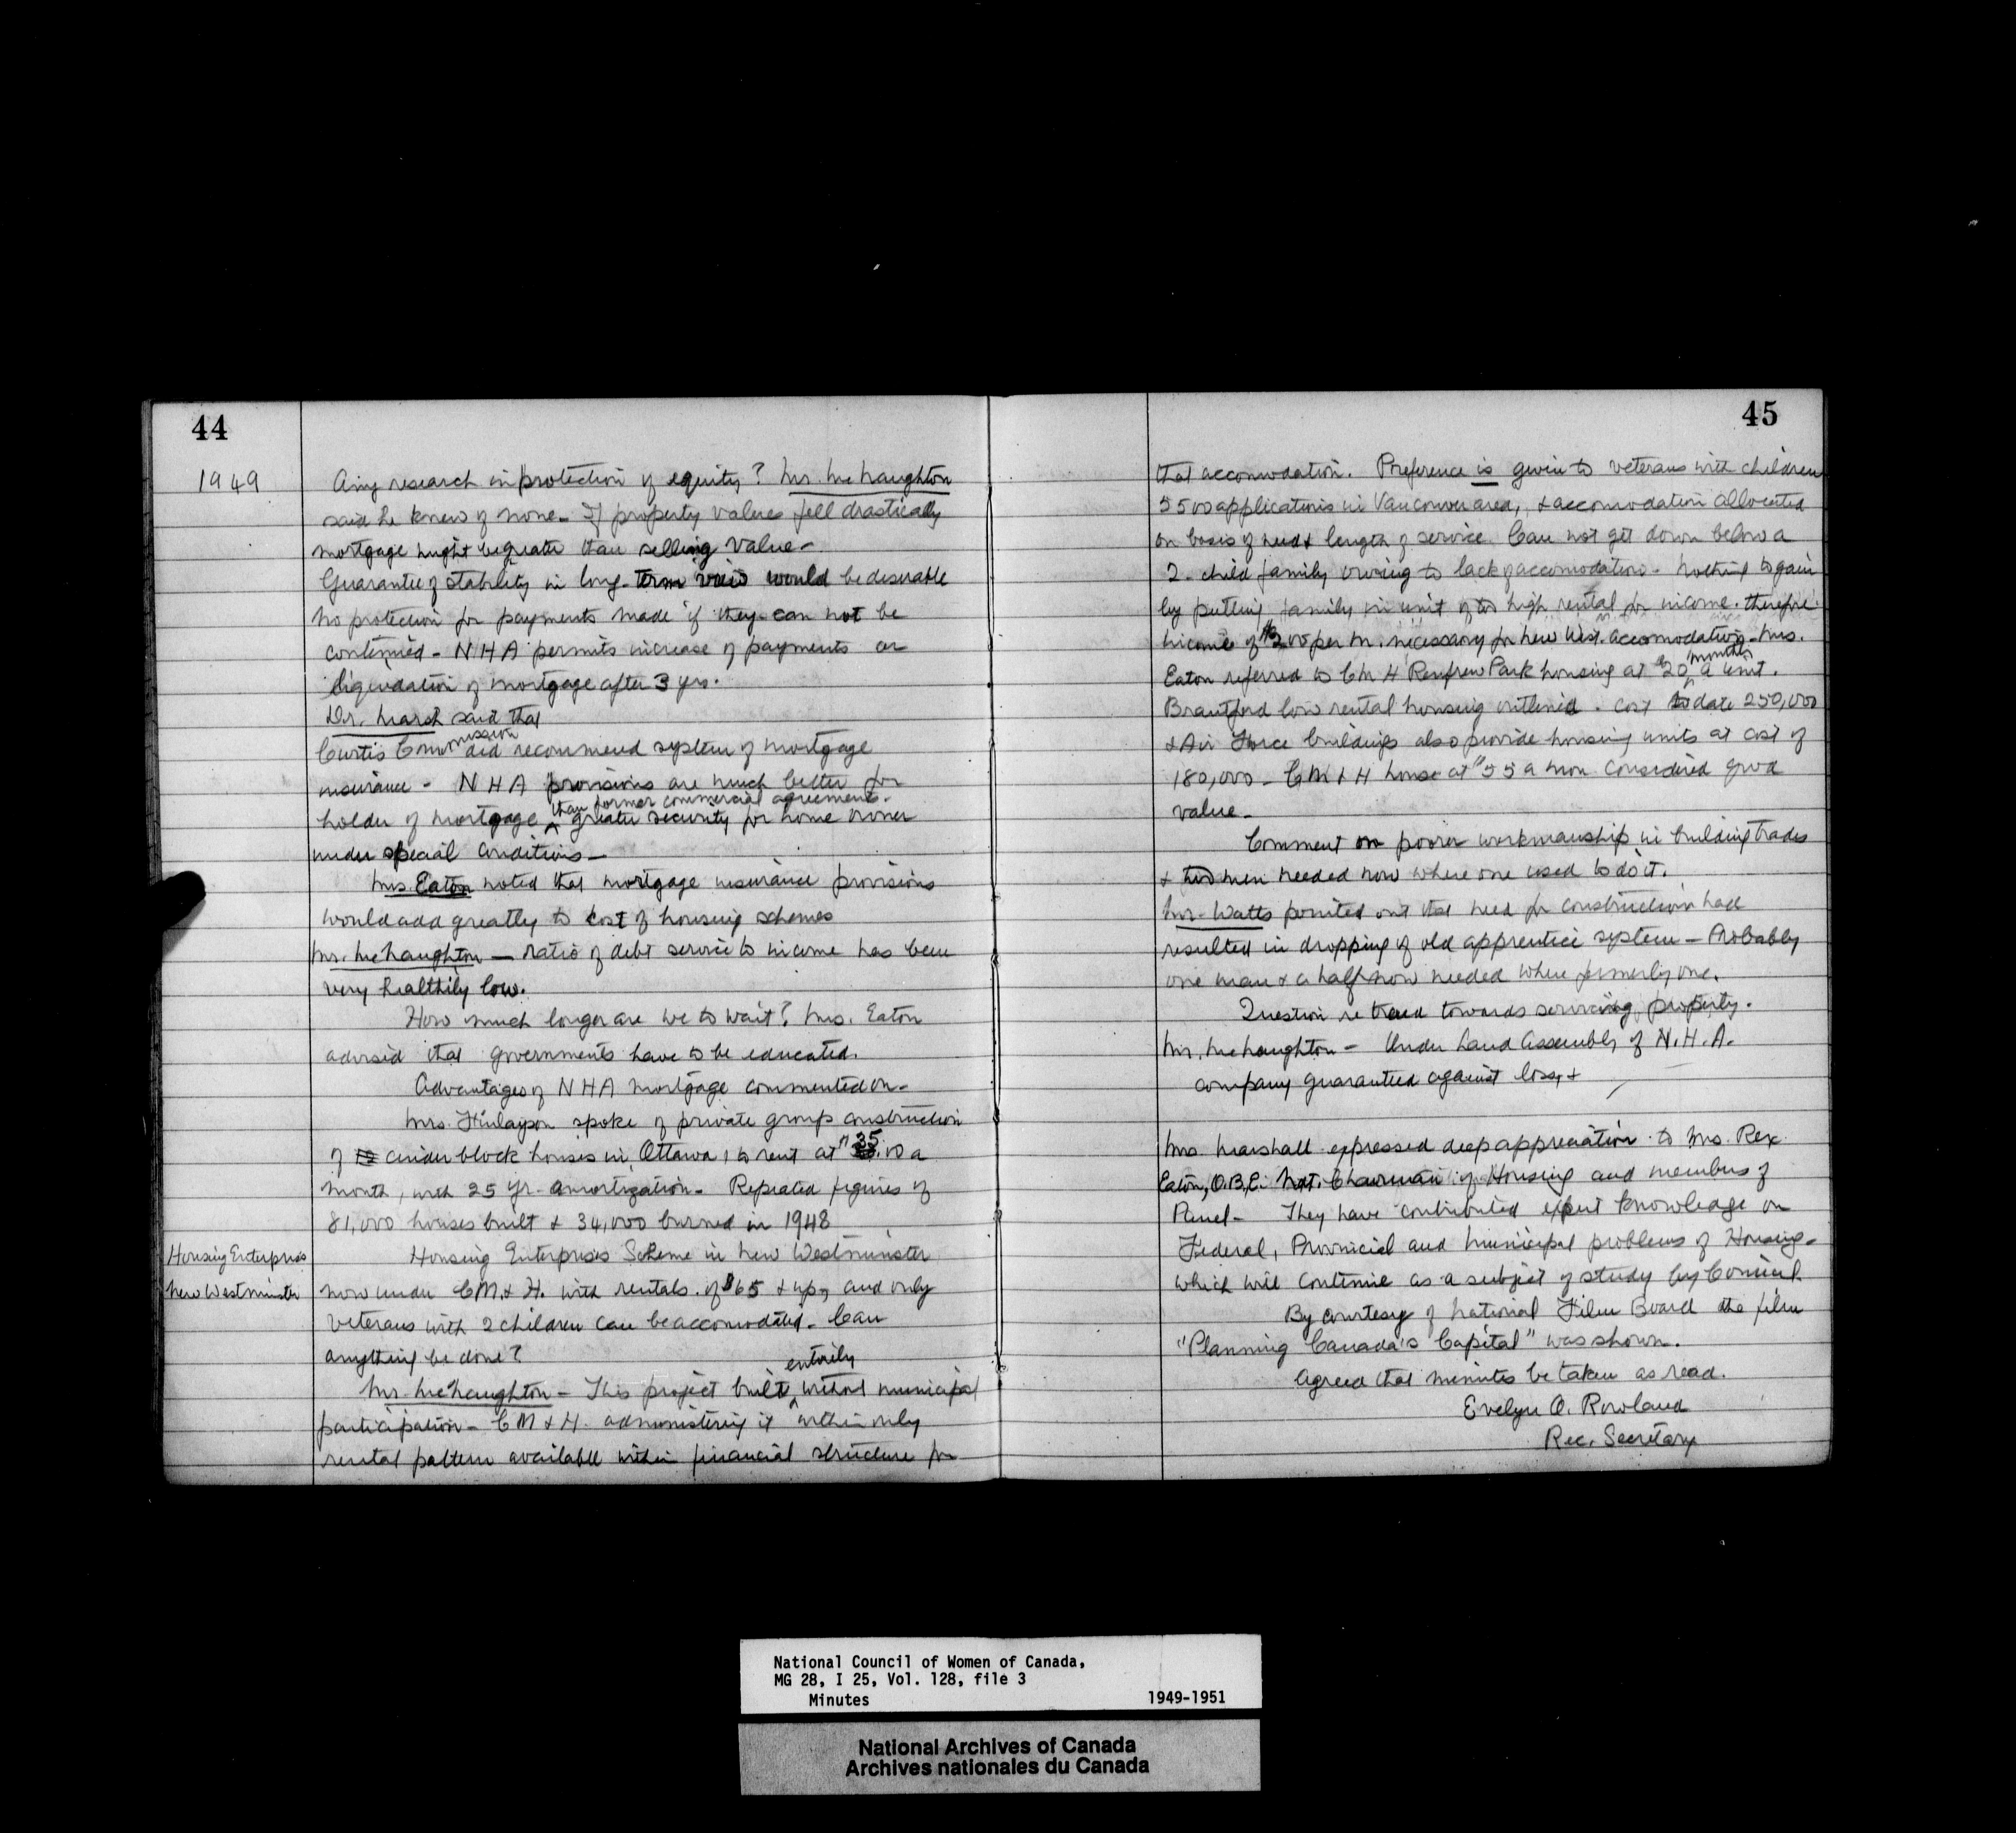 44
1949
Any research in protection of equity? Mr. McNaughton
said he knew of none. If property values fell drastically
mortgage might be greater than selling value -
Guarantee of stability in long-term view would be desirable
No protection for payments made if they can not be
continued - NHA permits increase of payments or
liquidation of mortgage after 3 yrs.
Dr. Marsh said that
Curtis Commission did recommend system of mortgage
insurance - NHA provisions are much better for
holder of mortgage than former commercial agreements. greater security for home owner
under special conditions -
Mrs. Eaton noted that mortgage insurance provisions
would add greatly to cost of housing schemes
Mr. McNaughton - ratio of debt service to income has been
very healthily low.
How much longer are we to wait? Mrs. Eaton
advised that governments have to be educated.
Advantages of NHA mortgage commented on -
Mrs. Finlayson spoke of private group construction
of cinder block houses in Ottawa, to rent at $35.00 a
month, with 25 yr. amortization. Repeated figures of
81,000 houses built & 34,000 burned in 1948
Housing Enterprises
New Westminster
Housing Enterprises Scheme in New Westminster
now under CM. & H. with rentals of $65 & up, and only
veterans with 2 children can be accomodated. Can
anything be done?
Mr. McNaughton - This project built entirely without municipal
participation - CM & H. administering it within only
rental pattern available within financial structure for
45
that accomodation. Preference is given to veterans with children
5500 applications in Vancouver area, & accomodation allocated
on basis of need & length of service. Can not get down below a
2-child family owing to lack of accomodation - Nothing to gain
by putting family in unit of too high rental for income. therefore
income of $200 per m. necessary for New West. accomodation - Mrs.
Eaton referred to CMH Renfrew Park housing at $20 a month a unit.
Brantford low rental housing outlined. Cost to date 250,000
& Air Force buildings also provide housing units at cost of
180,000 - CM & H house at $55 a mon. considered good
value -
Comment on poorer workmanship in building trades
& two men needed now where one used to do it.
Mr. Watts pointed out that need for construction had
resulted in dropping of old apprentice system - Probably
one man & a half now needed where formerly one.
Question re trend towards servicing property.
Mr. McNaughton - Under Land Assembly of N.H.A.
company guaranteed against loss, &
Mrs. Marshall expressed deep appreciation to Mrs. Rex
Eaton, O.B.E. Nat. Chairman of Housing and members of
Panel - They have contributed expert knowledge on
Federal, Provincial and Municipal problems of Housing -
which will continue as a subject of study by Council.
By courtesy of National Film Board the film
"Planning Canada's Capital" was shown.
Agreed that minutes be taken as read.
Evelyn A. Rowland
Rec. Secretary
National Council of Women of Canada,
MG 28, I 25, Vol. 128, file 3
Minutes 1949-1951
National Archives of Canada
Archives nationales du Canada